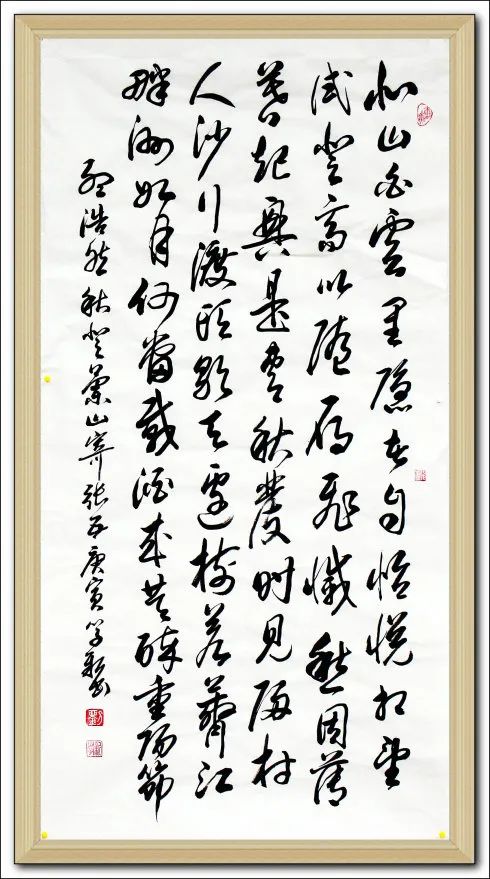 北山白雲里隱者自怡悅相望
試登高心隨雁飛滅愁因薄
暮起興是清秋發時見歸村
人沙行渡頭歇天邊樹若薺江
畔洲如月何當載酒來共醉重陽節
孟浩然秋登蘭山寄張五庚寅